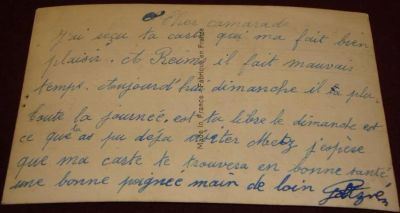 Cher camarade
J'ai reçu ta carte qui ma fait bien
plaisir. A Reims il fait mauvais
temps. Aujourd'hui dimanche il a plu
toute la journée. est tu libre le dimanche est
ce que tu as pu déja visiter Metz j'espere
que ma carte te trouvera en bonne santé
une bonne poignée main de loin
Made in France - Fabriqué en France